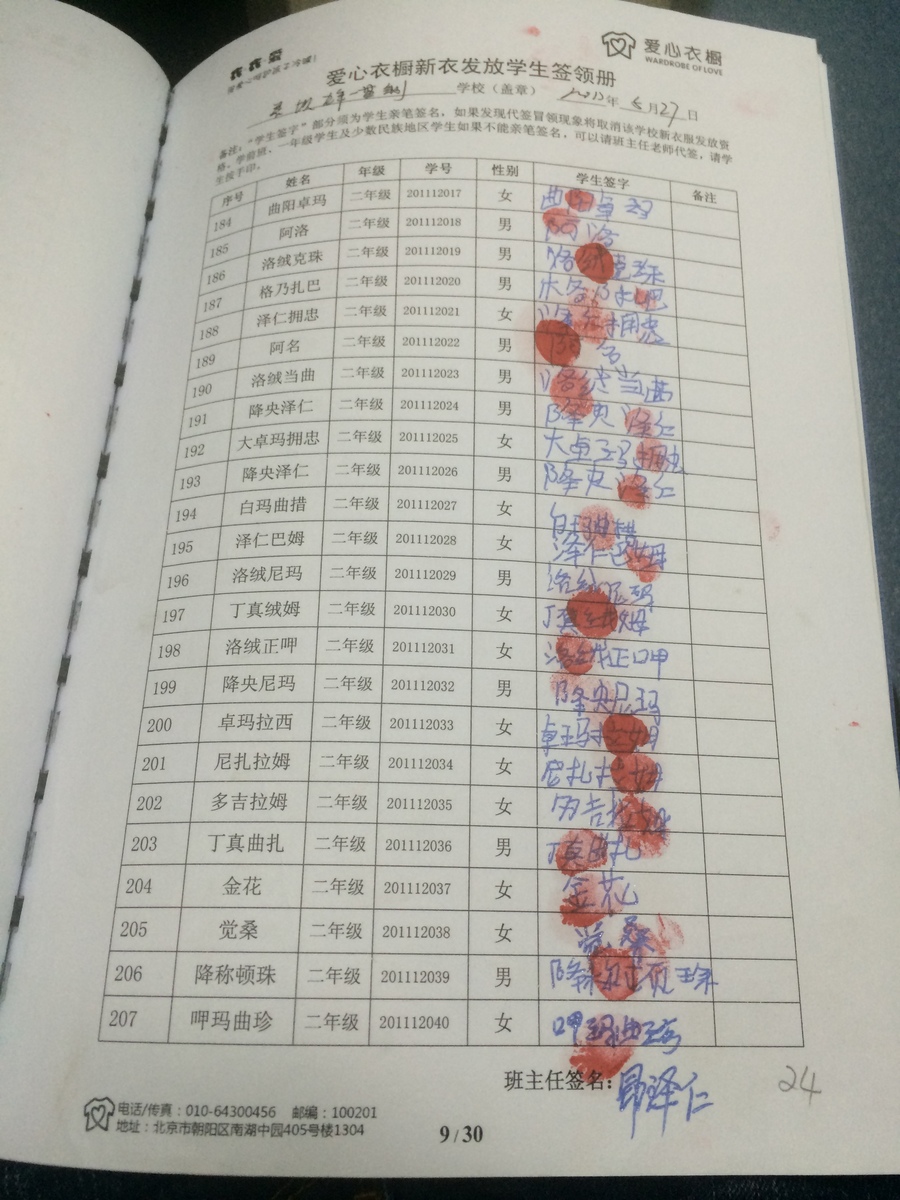 衣衣爱
爱心衣橱
WARDROBE OF LOVE
爱心衣橱新衣发放学生签领册
学校（盖章） 2013年 5月27日
备注："学生签字"部分须为学生亲笔签名，如果发现代签冒领现象将取消该学校新衣服发放资
格。学前班、一年级学生及少数民族地区学生如果不能亲笔签名，可以请班主任老师代签，请学
生按手印。
序号 姓名 年级 学号 性别 学生签字 备注
184 曲阳卓玛 二年级 201112017 女 曲阳卓玛
185 阿洛 二年级 201112018 男 阿洛
186 洛绒克珠 二年级 201112019 男 洛绒克珠
187 格乃扎巴 二年级 201112020 男
188 泽仁拥忠 二年级 201112021 女 泽仁拥忠
189 阿名 二年级 201112022 男 阿名
190 洛绒当曲 二年级 201112023 男 洛绒当曲
191 降央泽仁 二年级 201112024 男 降央泽仁
192 大卓玛拥忠 二年级 201112025 女 大卓玛拥忠
193 降央泽仁 二年级 201112026 男 降央泽仁
194 白玛曲措 二年级 201112027 女 白玛曲措
195 泽仁巴姆 二年级 201112028 女 泽仁巴姆
196 洛绒尼玛 二年级 201112029 男 洛绒尼玛
197 丁真绒姆 二年级 201112030 女 丁真绒姆
198 洛绒正呷 二年级 201112031 女 洛绒正呷
199 降央尼玛 二年级 201112032 男 降央尼玛
200 卓玛拉西 二年级 201112033 女 卓玛拉姆
201 尼扎拉姆 二年级 201112034 女 尼扎拉姆
202 多吉拉姆 二年级 201112035 女 多吉拉姆
203 丁真曲扎 二年级 201112036 男 丁真曲扎
204 金花 二年级 201112037 女 金花
205 觉桑 二年级 201112038 女 觉桑
206 降称顿珠 二年级 201112039 男 降称顿珠
207 呷玛曲珍 二年级 201112040 女 呷玛曲珍
班主任签名：昂泽仁
24
电话/传真：010-64300456 邮编：100201
地址：北京市朝阳区南湖中园405号楼1304
9/30